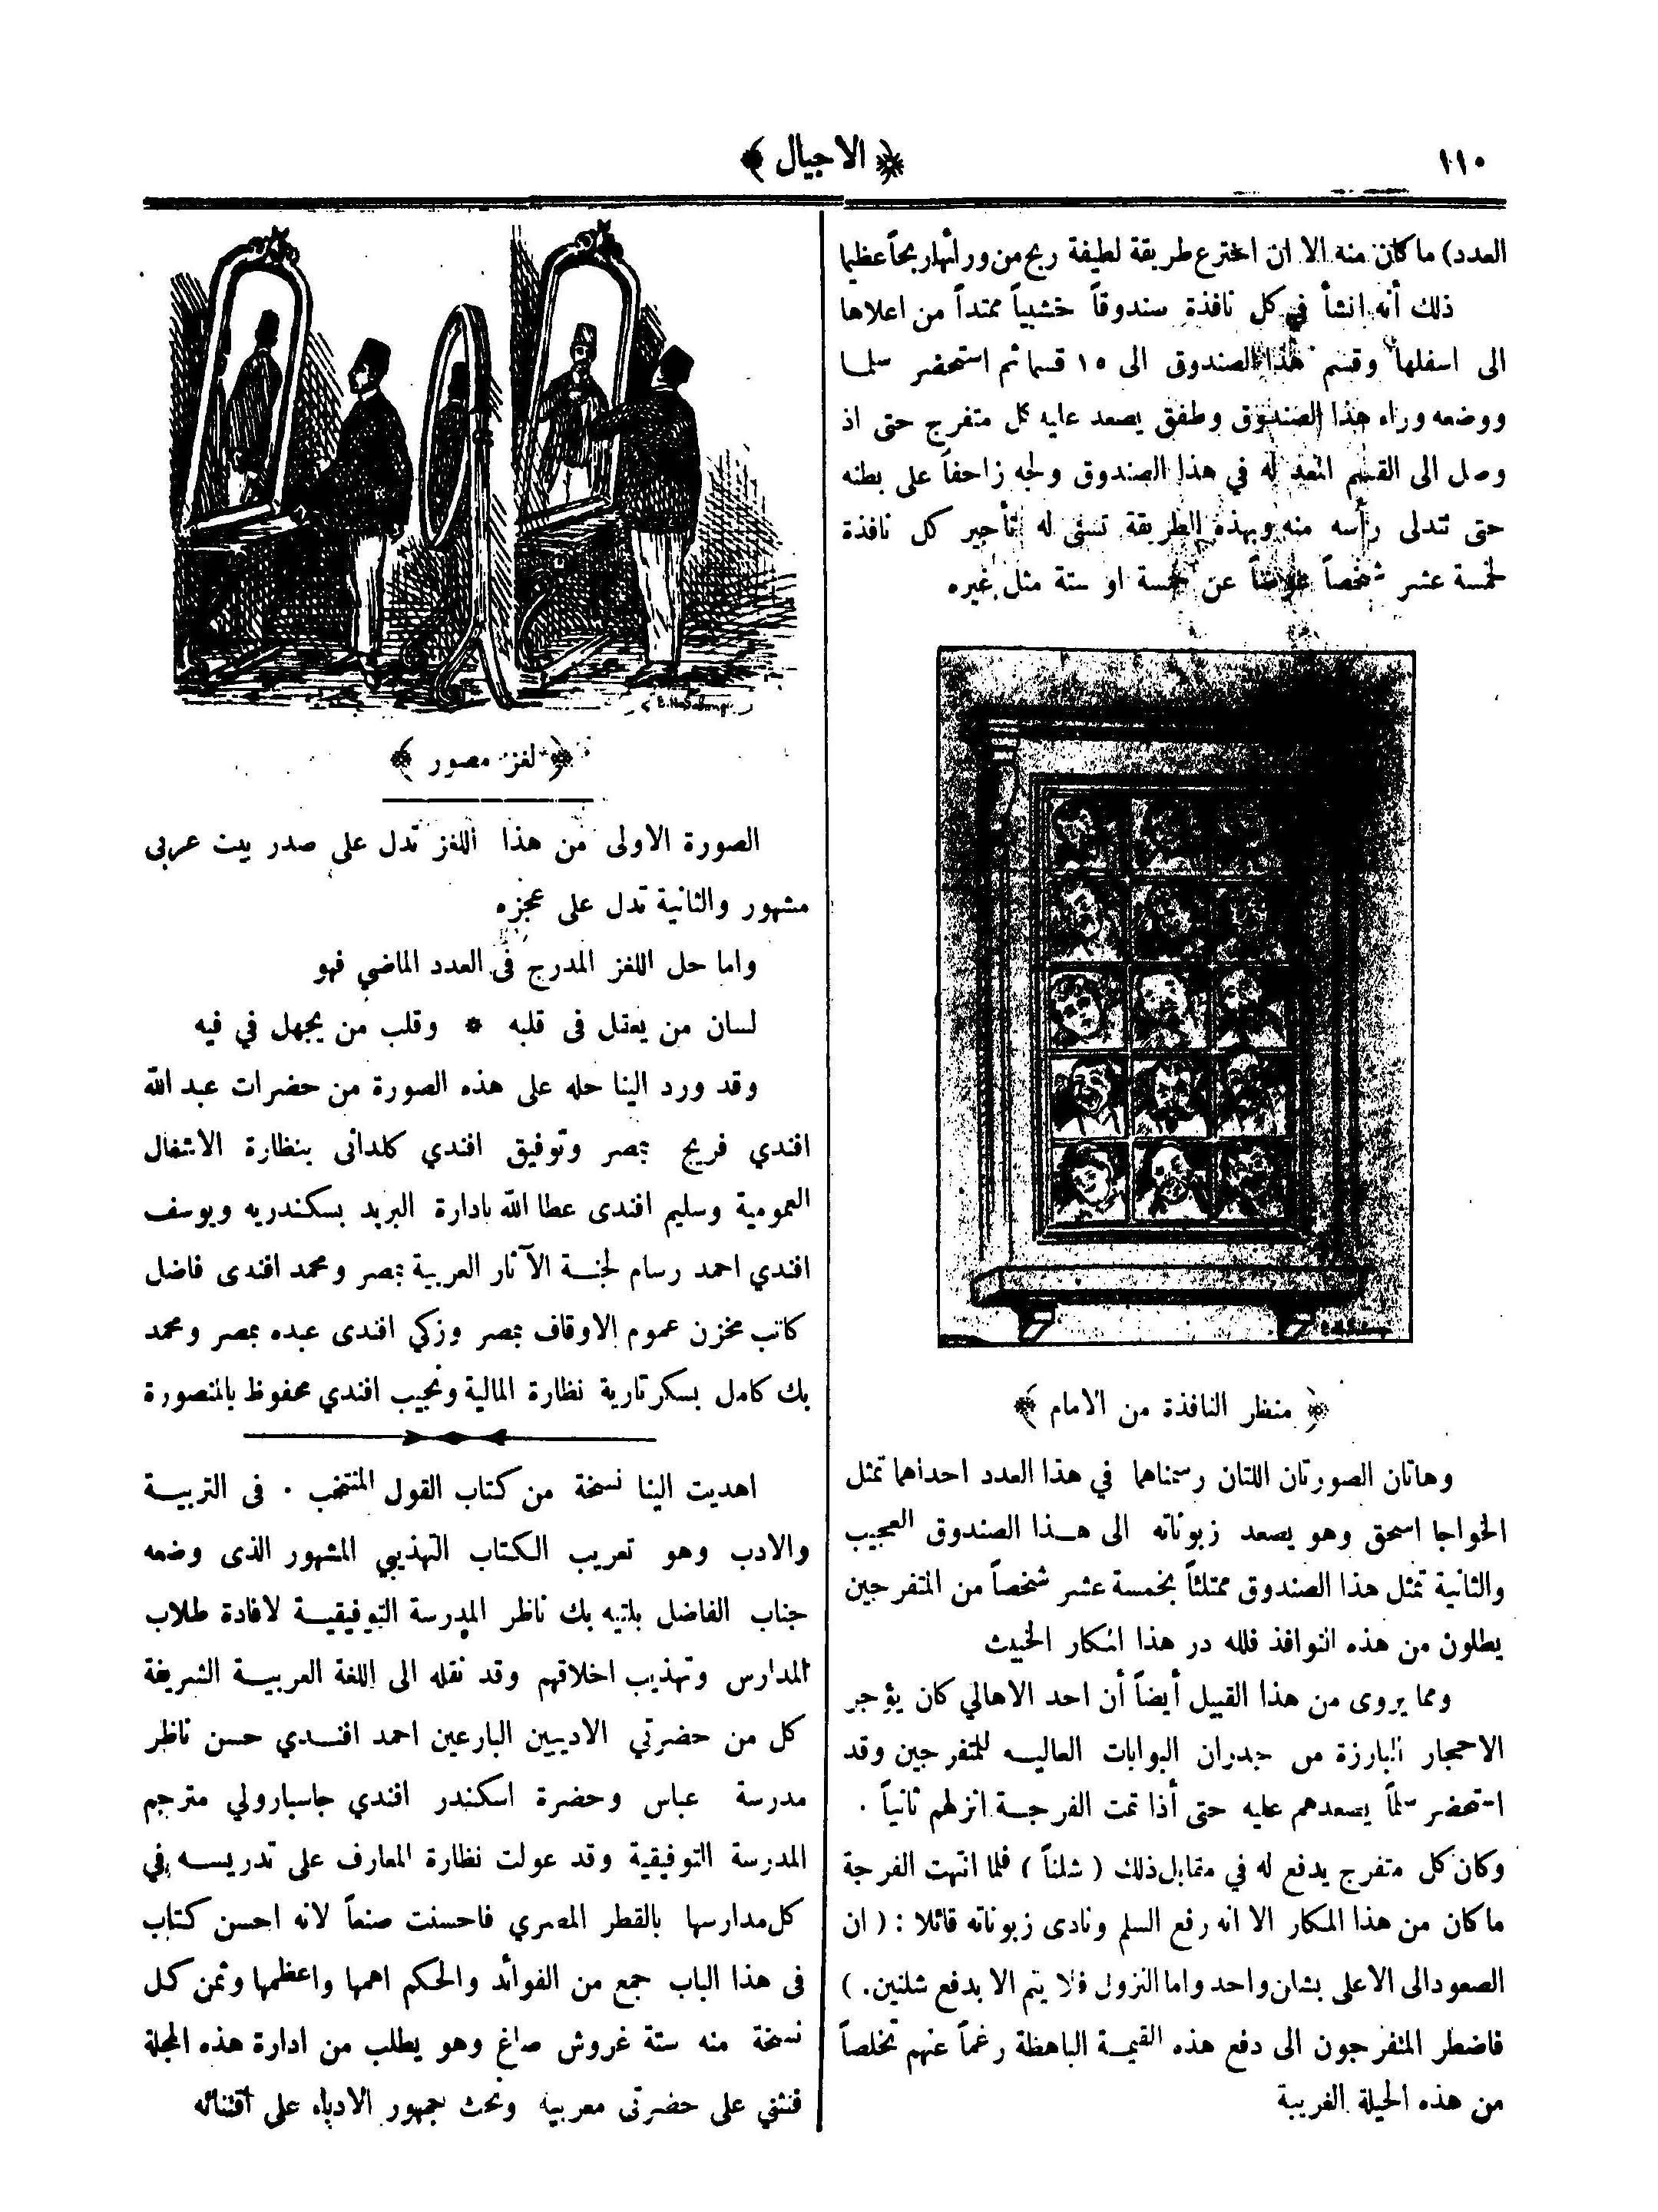 ١١٠
﴿ الاجيال ﴾
العدد) ما كان منه الا ان اخترع طريقة لطيفة ربح من ورائها ربحاً عظيما
ذلك أنه انشأ في كل نافذة سندوقاً خشبياً ممتداً من اعلاها
الى اسفلها وقسم هذا الصندوق الى ١٥ قسما ثم استحضر سلما
ووضعه وراء هذا الصندوق وطفق يصعد عليه كل متفرج حتى اذ
وصل الى القسم المعد له في هذا الصندوق ولجه زاحفاً على بطنه
حتى تتدلى رأسه منه وبهذه الطريقة تسنى له تأجير كل نافذة
لخمسة عشر شخصاً عوضاً عن خمسة او ستة مثل غيره
﴿ منظر النافذة من الامام ﴾
وهاتان الصورتان اللتان رسمناهما في هذا العدد احداهما تمثل
الخواجا اسحق وهو يصعد زبوناته الى هذا الصندوق العجيب
والثانية تمثل هذا الصندوق ممتلئاً بخمسة عشر شخصاً من المتفرجين
يطلون من هذه النوافذ فلله در هذا المكار الخبيث
ومما يروى من هذا القبيل أيضاً أن احد الاهالي كان يؤجر
الاحجار البارزة من جدران البوابات العاليه للمتفرجين وقد
استحضر سلماً يصعدهم عليه حتى أذا تمت الفرجة انزلهم ثانياً .
وكان كل متفرج يدفع له في مقابل ذلك ( شلناً ) فلما انتهت الفرجة
ما كان من هذا المكار الا انه رفع السلم ونادى زبوناته قائلا : ( ان
الصعود الى الاعلى بشلن واحد واما النزول فلا يتم الا بدفع شلنين . )
فاضطر المتفرجون الى دفع هذه القيمة الباهظة رغماً عنهم تخلصاً
من هذه الحيلة الغريبة
﴿ لغز مصور ﴾
الصورة الاولى من هذا اللغز تدل على صدر بيت عربى
مشهور والثانية تدل على عجزه
واما حل اللغز المدرج فى العدد الماضي فهو
لسان من يعقل فى قلبه * وقلب من يجهل في فيه
وقد ورد الينا حله على هذه الصورة من حضرات عبد الله
افندي فريج بمصر وتوفيق افندي كلدانى بنظارة الاشغال
العمومية وسليم افندى عطا الله بادارة البريد بسكندريه ويوسف
افندي احمد رسام لجنة الآثار العربية بمصر ومحمد افندى فاضل
كاتب مخزن عموم الاوقاف بمصر وزكي افندى عبده بمصر ومحمد
بك كامل بسكرتارية نظارة المالية ونجيب افندي محفوظ بالمنصورة
اهديت الينا نسخة من كتاب القول المنتخب . فى التربية
والادب وهو تعريب الكتاب التهذيبي المشهور الذى وضعه
جناب الفاضل بلتيه بك ناظر المدرسة التوفيقية لافادة طلاب
المدارس وتهذيب اخلاقهم وقد نقله الى اللغة العربية الشريفة
كل من حضرتي الاديبين البارعين احمد افندي حسن ناظر
مدرسة عباس وحضرة اسكندر افندي جاسبارولي مترجم
المدرسة التوفيقية وقد عولت نظارة المعارف على تدريسه في
كل مدارسها بالقطر المصري فاحسنت صنعاً لانه احسن كتاب
فى هذا الباب جمع من الفوائد والحكم اهمها واعظمها وثمن كل
نسخة منه ستة غروش صاغ وهو يطلب من ادارة هذه المجلة
فنثني على حضرتى معربيه ونحث جمهور الادباء على اقتنائه